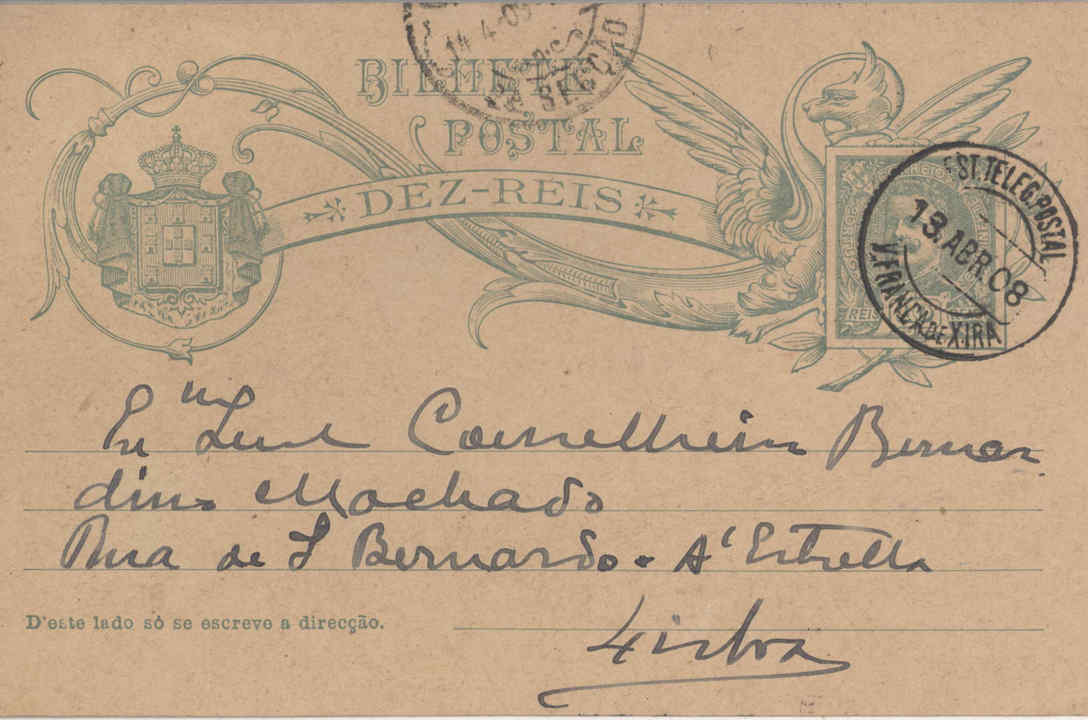 14-4-08
SECÇÃO
BILHETE
POSTAL
DEZ-REIS
EST. TELEG. POSTAL
13. ABR. 08
V. FRANCA DE XIRA
REIS
Exmo Senr Conselheiro Bernar
dino Machado
Rua de S Bernardo - A' Estrella
D'este lado só se escreve a direcção.
Lisboa